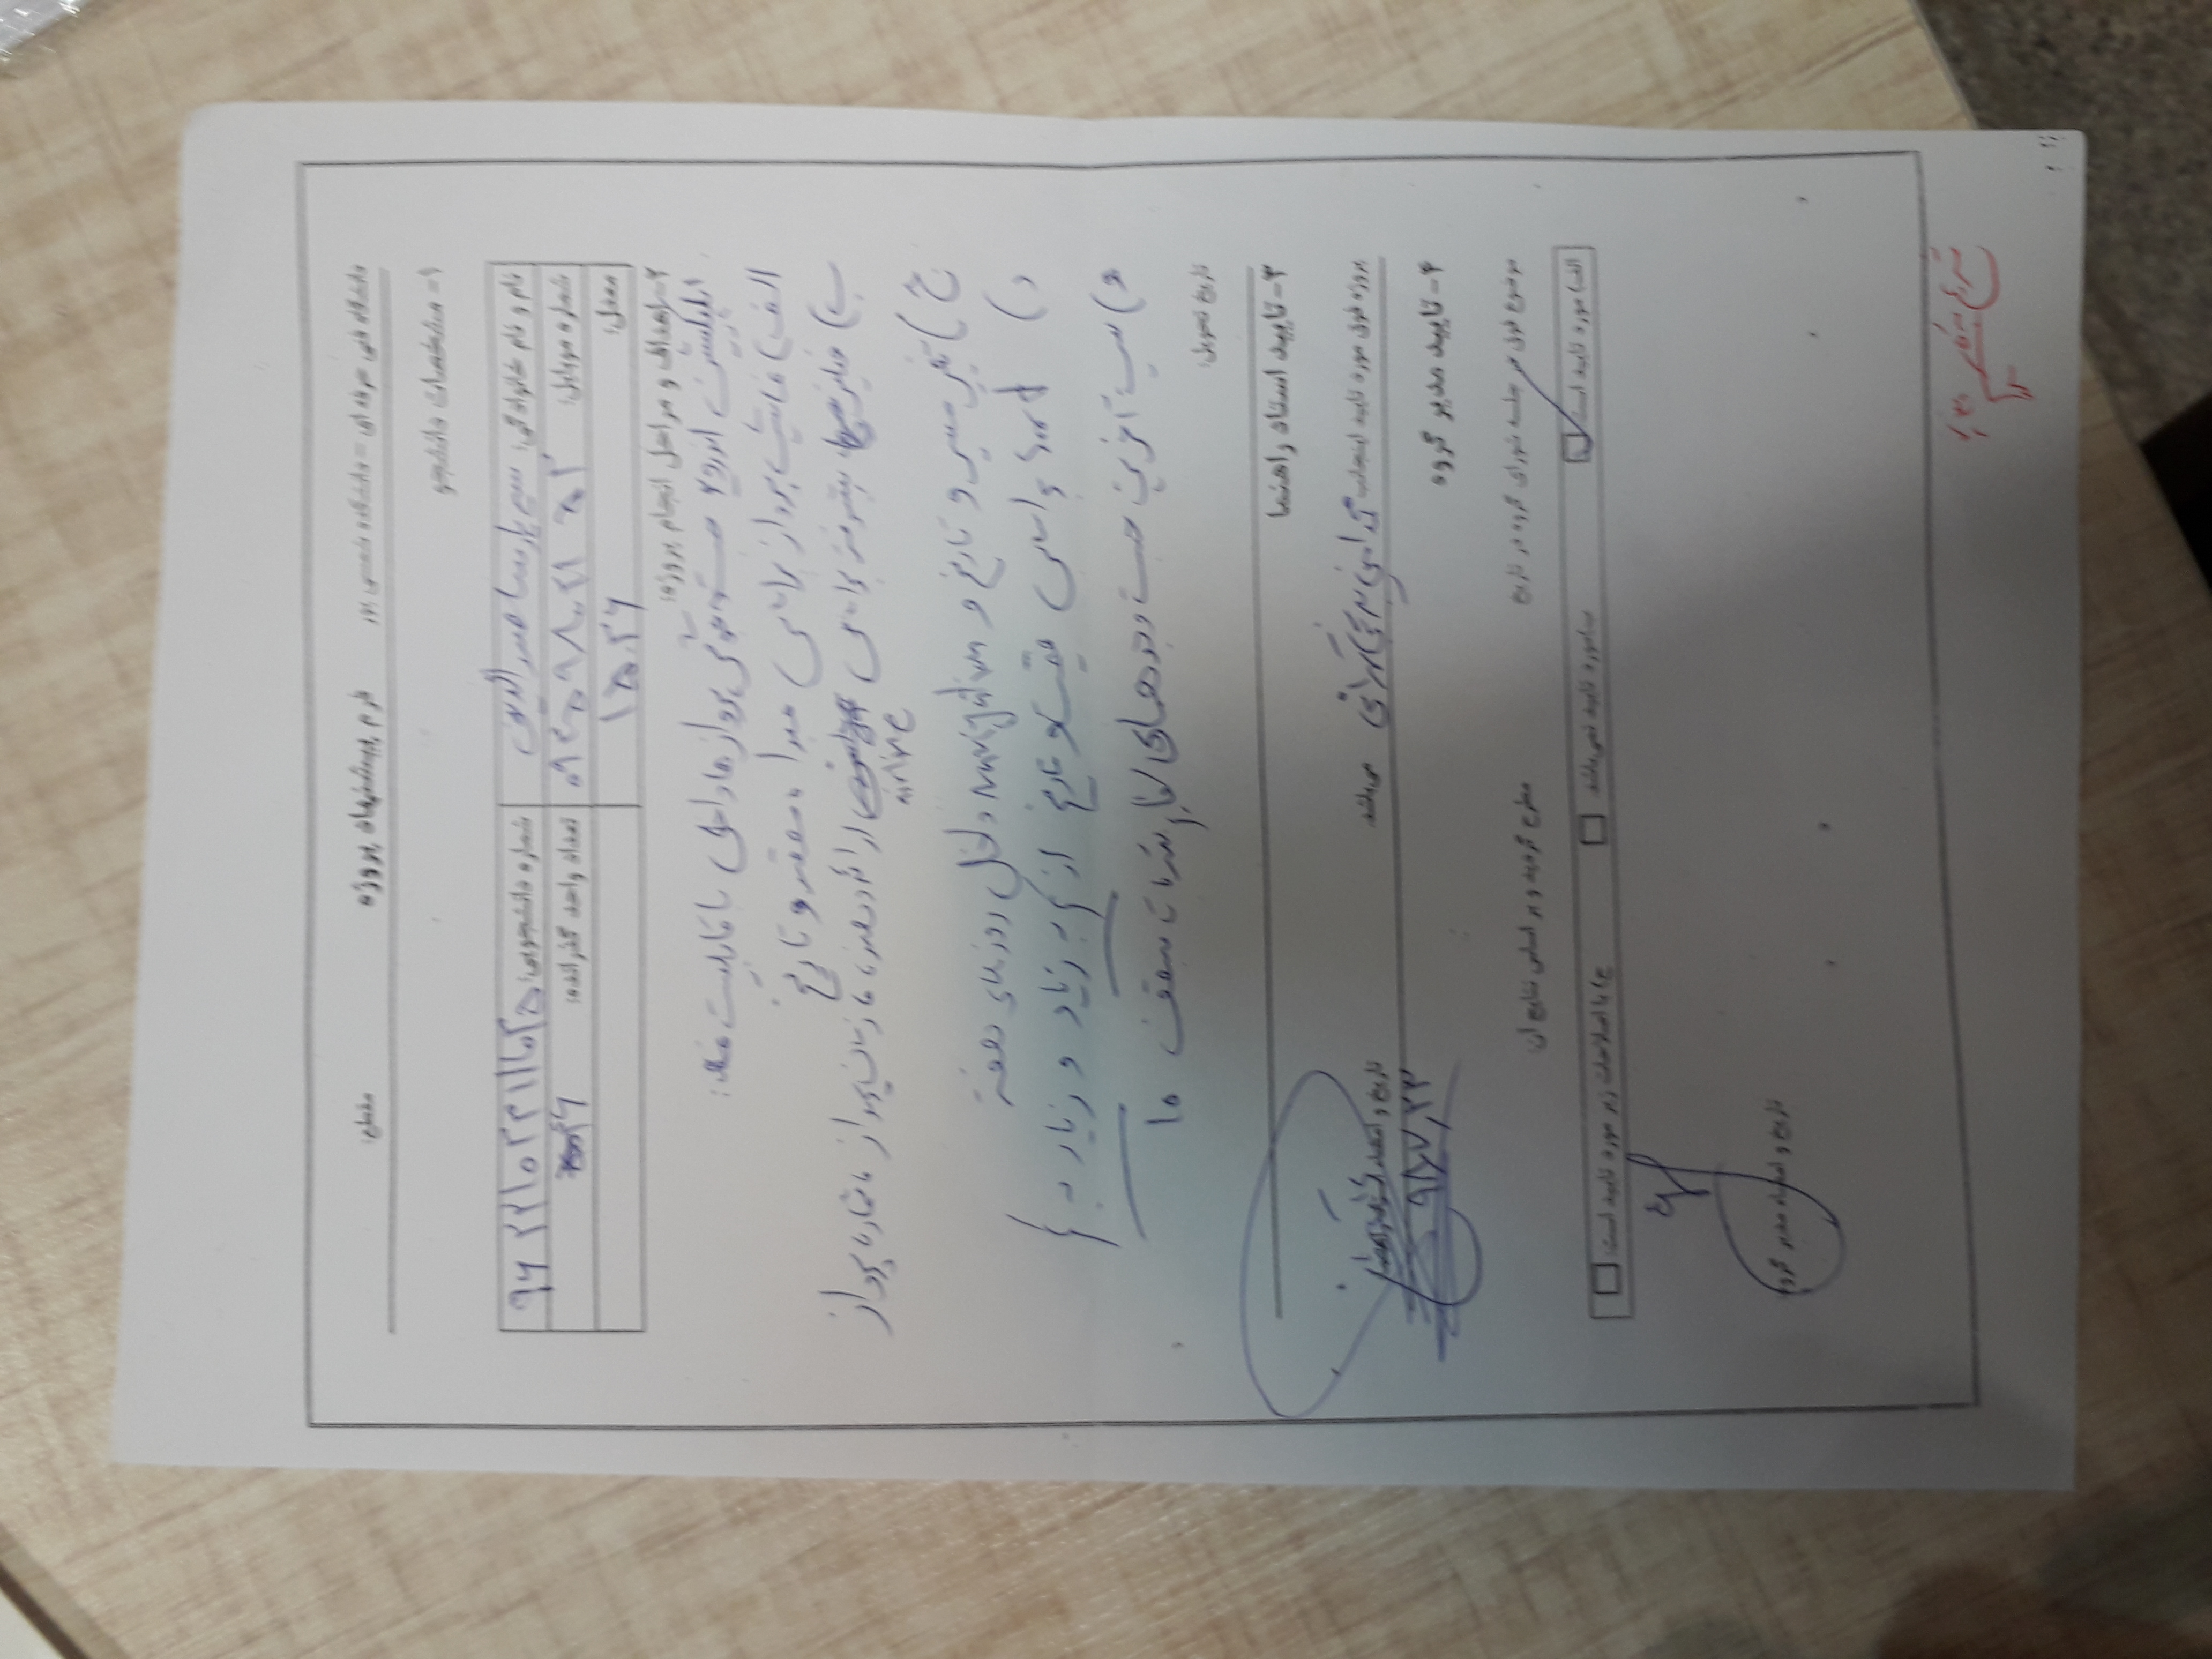 دانشگاه فنی حرفه ای - دانشکده شمسی پور فرم پیشنهاد پروژه مقطع:
۱- مشخصات دانشجو
نام و نام خانوادگی: سید پارسا صدرالدین شماره دانشجویی:
شماره موبایل: تعداد واحد گذرانده:
معدل: ۱۵.۲۶
۲- اهداف و مراحل انجام پروژه:
اپلیکیشن اندروید جست وجوی پرواز های داخلی با قابلیت
الف) نمایش پرواز براساس مبدا، مقصد و تاریخ
ب) فیلترهای پیشرفته براساس airline ارائه دهنده، زمان پرواز، شماره پرواز
ج) تغییر مسیر و تاریخ و navigation داخل روزهای هفته
د) sort براساس قیمت و تاریخ از کم به زیاد و زیاد به کم
و) آخرین جست وجوهای سقف ۱۰
تاریخ تحویل:
۳- تایید استاد راهنما
پروژه فوق مورد تایید اینجانب می‌باشد. تاریخ و امضاء استاد راهنما
۹۸,۷,۲۳
۴- تایید مدیر گروه
موضوع فوق در جلسه شورای گروه در تاریخ مطرح گردید و بر اساس نتایج آن:
الف) مورد تایید است ب) مورد تایید نمی‌باشد. ج) با اصلاحات زیر مورد تایید است:
تاریخ و امضاء مدیر گروه